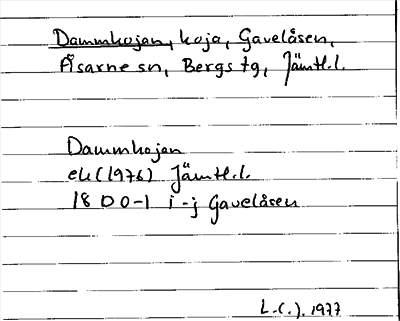 Dammkojan, koja, Gavelåsen,
Åsarne sn, Bergs tg, Jämtl.l.
Dammkojan
ek (1976) Jämtl.l.
18 D 0-1 i-j Gavelåsen
L.(.). 1977